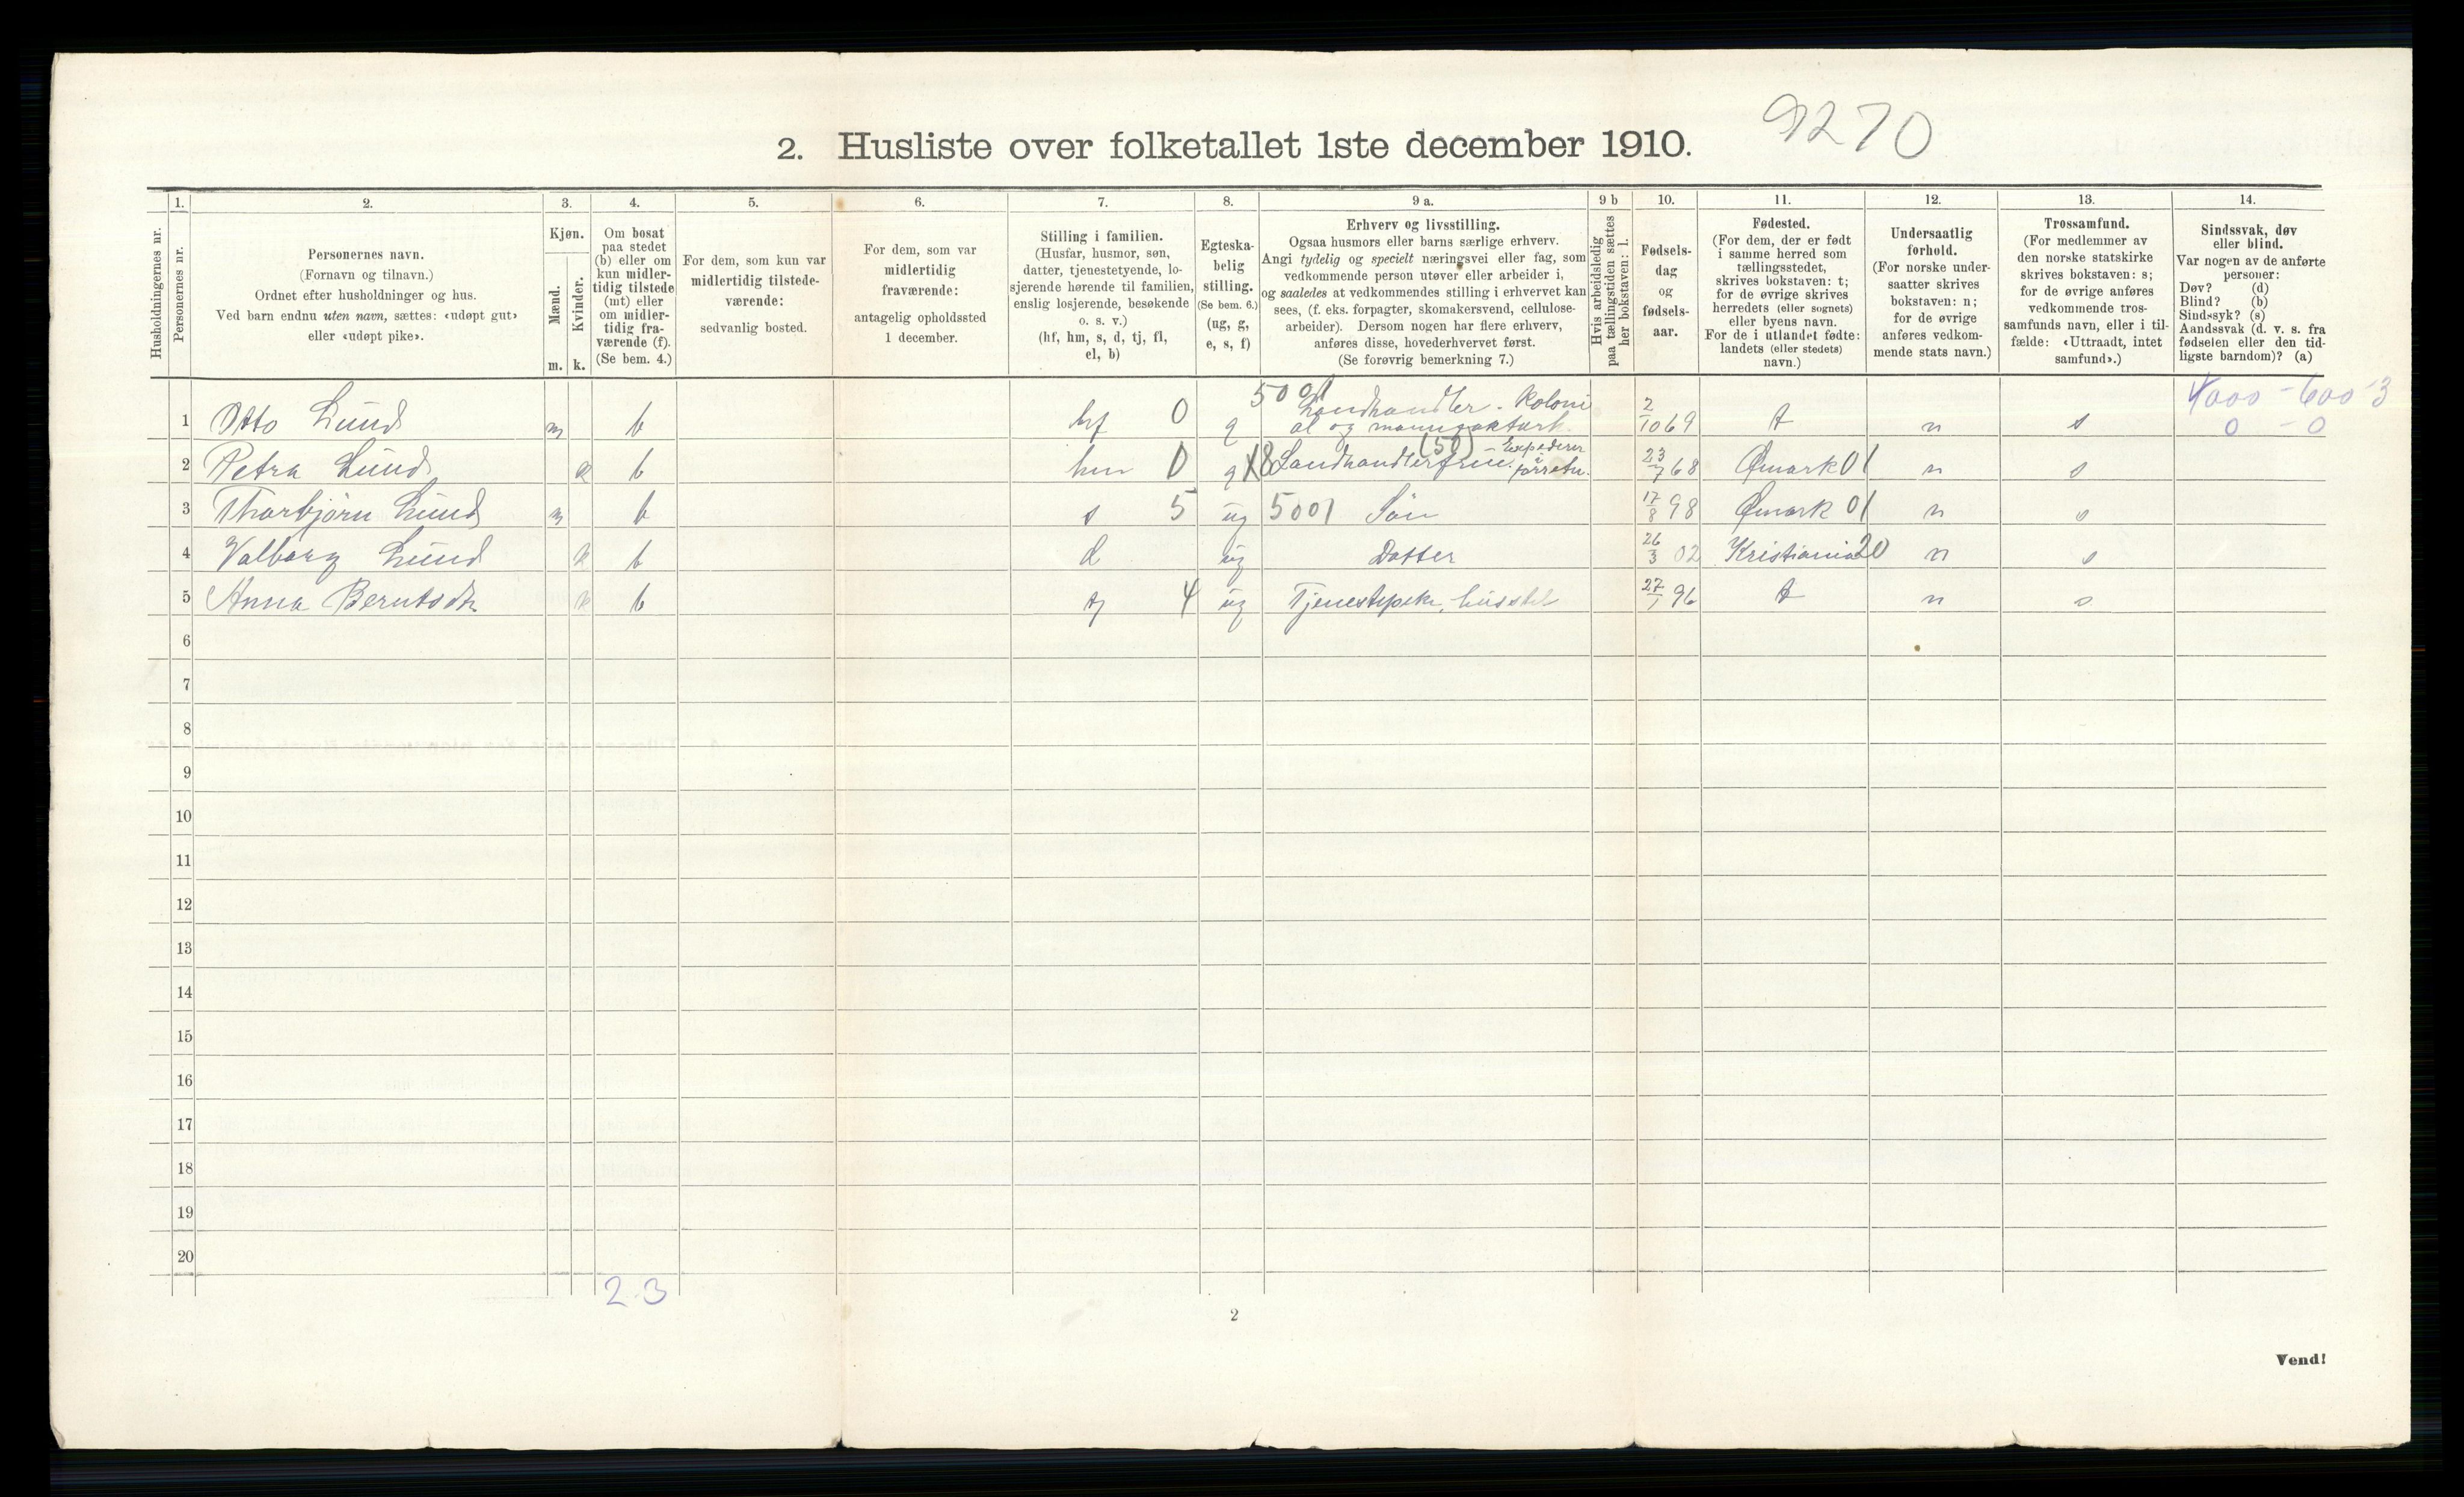 2. Husliste over folketallet 1ste december 1910. 9270
1. 2. 3. 4. 5. 6. 7. 8. 9 a. 9 b 10. 11. 12. 13. 14.
Husholdningernes nr.
Personernes nr.
Personernes navn.
(Fornavn og tilnavn.)
Ordnet efter husholdninger og hus.
Ved barn endnu uten navn, sættes: «udøpt gut»
eller «udøpt pike».
Kjøn.
Mænd.
Kvinder.
m. k.
Om bosat
paa stedet
(b) eller om
kun midler-
tidig tilstede
(mt) eller
om midler-
tidig fra-
værende (f).
(Se bem. 4.)
For dem, som kun var
midlertidig tilstede-
værende:
sedvanlig bosted.
For dem, som var
midlertidig
fraværende:
antagelig opholdssted
1 december.
Stilling i familien.
(Husfar, husmor, søn,
datter, tjenestetyende, lo-
sjerende hørende til familien,
enslig losjerende, besøkende
o. s. v.)
(hf, hm, s, d, tj, fl,
el, b)
Egteska-
belig
stilling.
(Se bem. 6.)
(ug, g,
e, s, f)
Erhverv og livsstilling.
Ogsaa husmors eller barns særlige erhverv.
Angi tydelig og specielt næringsvei eller fag, som
vedkommende person utøver eller arbeider i,
og saaledes at vedkommendes stilling i erhvervet kan
sees, (f. eks. forpagter, skomakersvend, cellulose-
arbeider). Dersom nogen har flere erhverv,
anføres disse, hovederhvervet først.
(Se forøvrig bemerkning 7.)
Hvis arbeidsledig
paa tællingstiden sættes
her bokstaven: l.
Fødsels-
dag
og
fødsels-
aar.
Fødested.
(For dem, der er født
i samme herred som
tællingsstedet,
skrives bokstaven: t;
for de øvrige skrives
herredets (eller sognets)
eller byens navn.
For de i utlandet fødte:
landets (eller stedets)
navn.)
Undersaatlig
forhold.
(For norske under-
saatter skrives
bokstaven: n;
for de øvrige
anføres vedkom-
mende stats navn.)
Trossamfund.
(For medlemmer av
den norske statskirke
skrives bokstaven: s;
for de øvrige anføres
vedkommende tros-
samfunds navn, eller i til-
fælde: «Uttraadt, intet
samfund».)
Sindssvak, døv
eller blind.
Var nogen av de anførte
personer:
Døv? (d)
Blind? (b)
Sindssyk? (s)
Aandssvak (d. v. s. fra
fødselen eller den tid-
ligste barndom)? (a)
5001 4000 - 600 - 3
1 Otto Lund m b hf 0 g Landhandler - Koloni 2/10 69 t n s 0 - 0
al og manufakturh.
2 Petra Lund k b hm 0 g Landhandlerfrue. (50) - Expederer 23/7 68 Ømark 01 n s
3 Thorbjørn Lund m b s 5 ug 5001 Søn 17/8 98 Ømark 01 n s
4 Valborg Lund k b d ug Datter 26/3 02 Kristiania 20 n s
5 Anna Berntsdtr. k b tj 4 ug Tjenestepike, husstel 27/1 96 t n s
6
7
8
9
10
11
12
13
14
15
16
17
18
19
20
2 3
2
Vend!